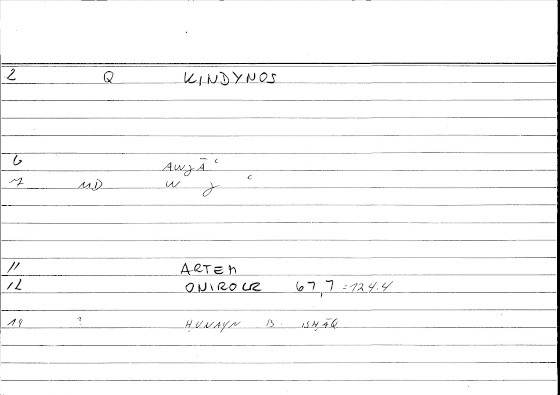 2 Q KINDYNOS
6 AWJĀʿ
7 MD W J ʿ
11 ARTEM
12 ONIROCR 67,7 = 124.4
14 ? ḤUNAYN B. ISḤĀQ